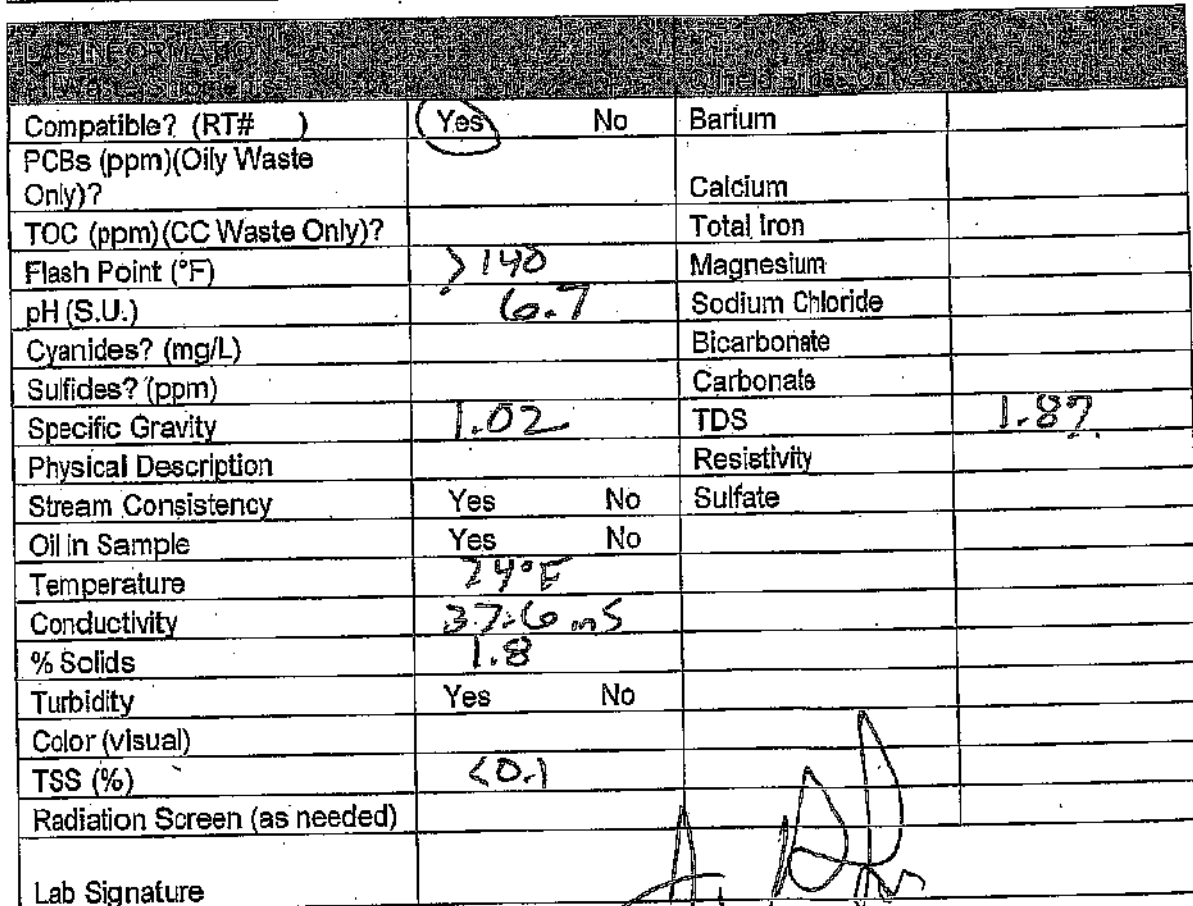 LAB INFORMATION
Compatible? (RT# ) Yes No Barium
PCBs (ppm)(Oily Waste
Only)? Calcium
TOC (ppm)(CC Waste Only)? Total Iron
Flash Point (°F) >140 Magnesium
pH (S.U.) 6.7 Sodium Chloride
Cyanides? (mg/L) Bicarbonate
Sulfides? (ppm) Carbonate
Specific Gravity 1.02 TDS
Physical Description Resistivity
Stream Consistency Yes No Sulfate
Oil in Sample Yes No
Temperature 74°F
Conductivity 37.6 mS
% Solids 1.8
Turbidity Yes No
Color (visual)
TSS (%) <0.1
Radiation Screen (as needed)
Lab Signature